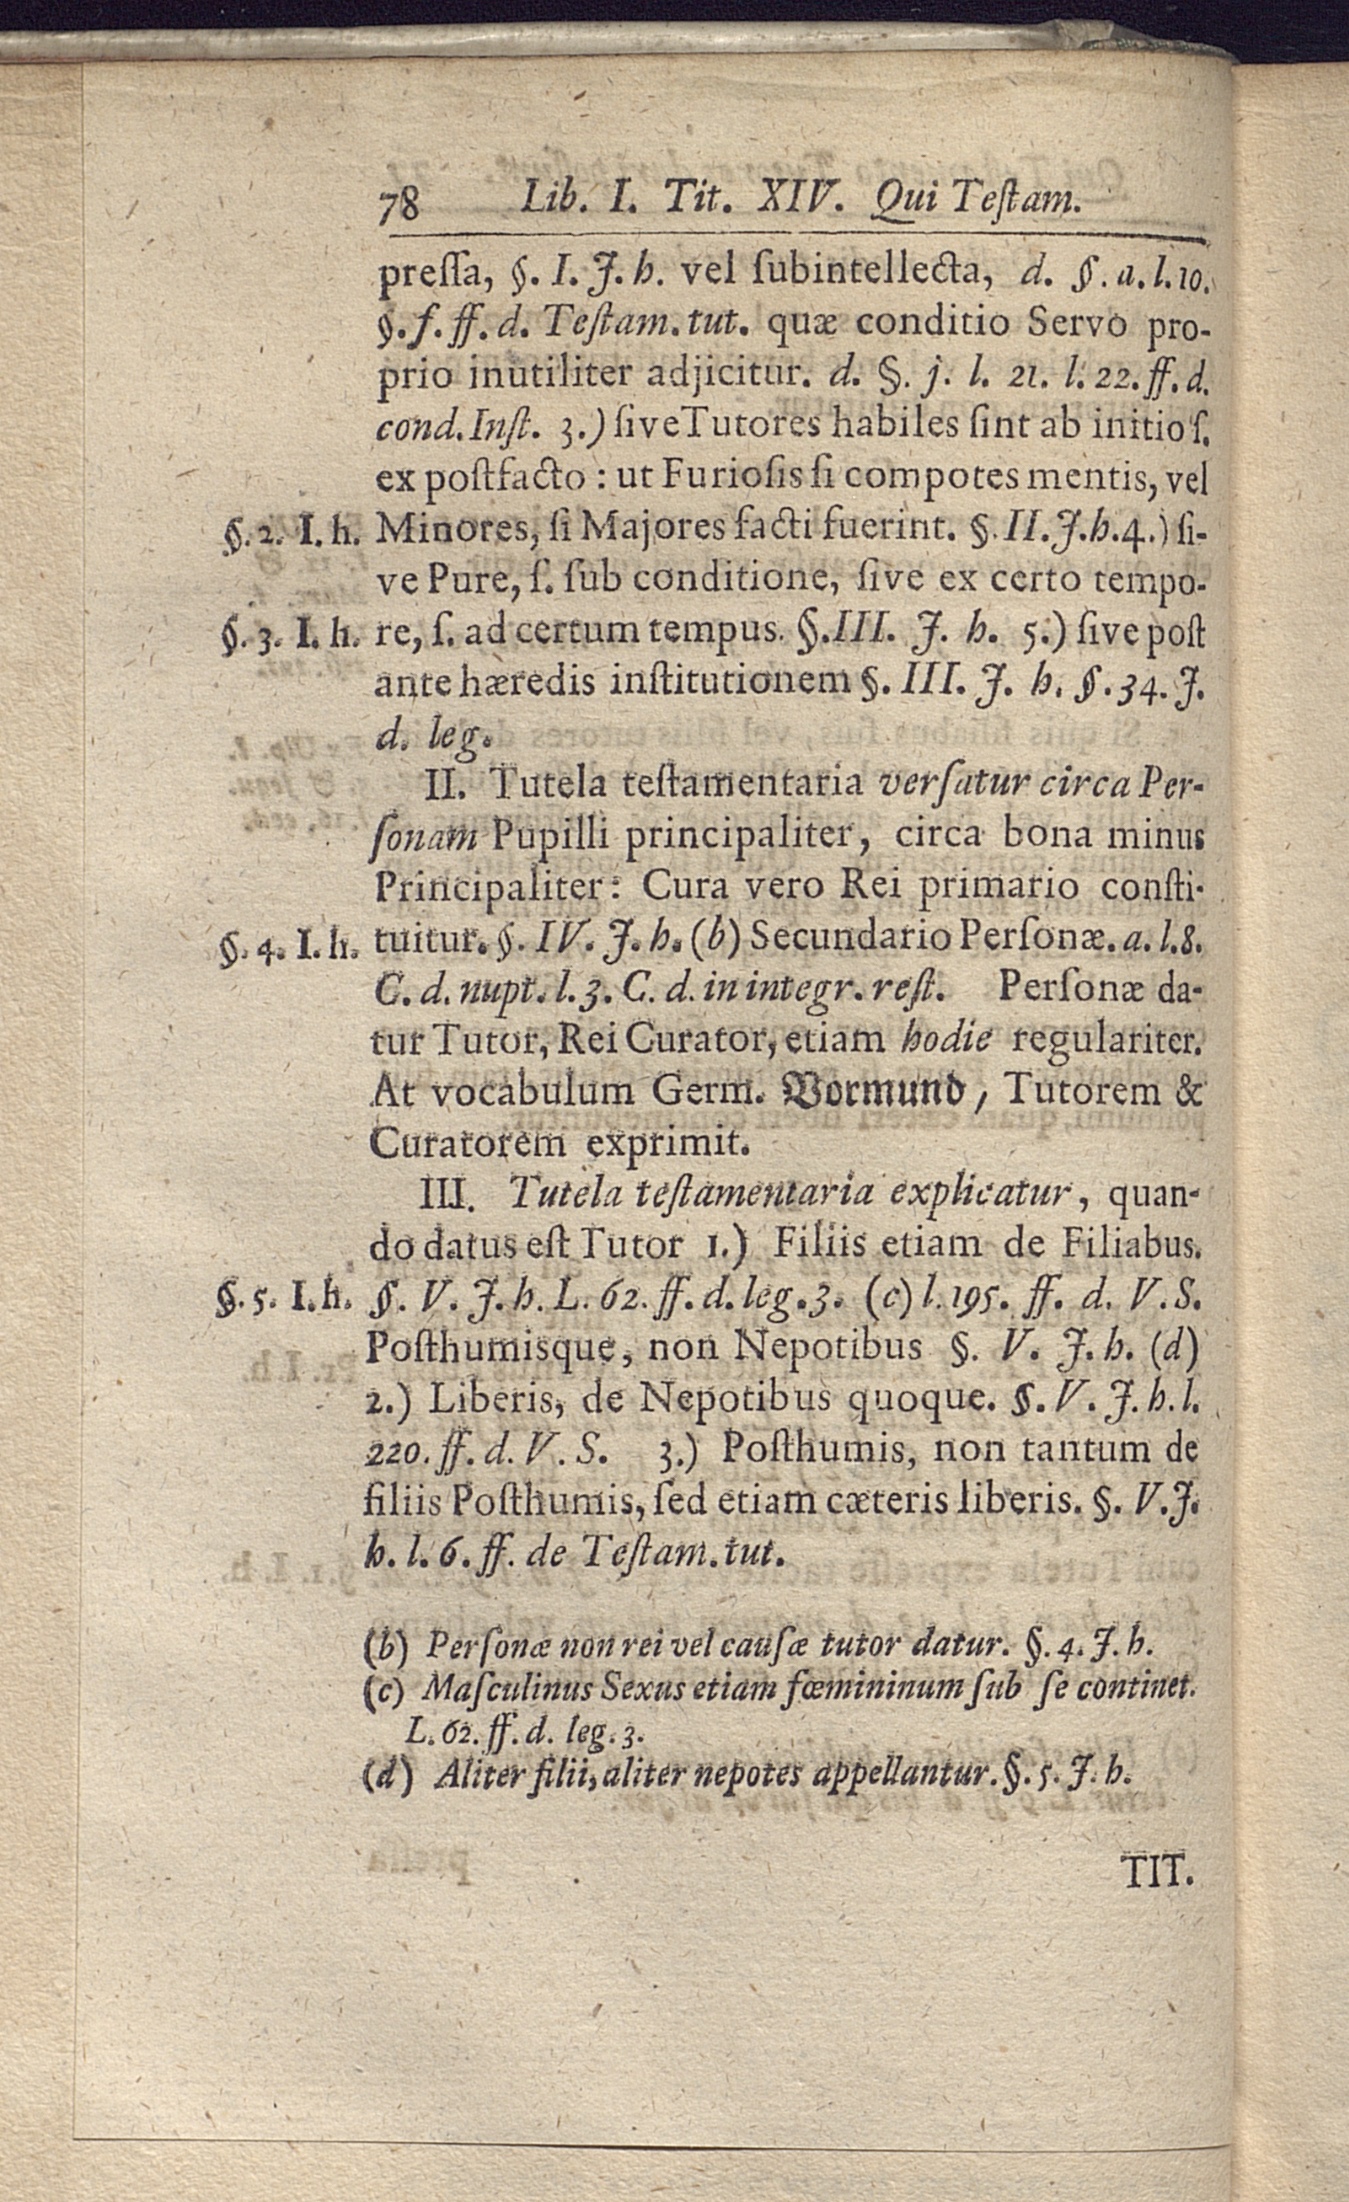 78 Lib. I. Tit. XIV. Qui Teſtam.
preſſa, §. I. J. h. vel ſubintellecta, d. §. a. l. 10.
§. f. ff. d. Teſtam. tut. quæ conditio Servo pro-
prio inutiliter adjicitur. d. §. j. l. 21. l. 22. ff. d.
cond. Inſt. 3.) ſive Tutores habiles ſint ab initio ſ.
ex poſtfacto: ut Furioſis ſi compotes mentis, vel
§. 2. I. h. Minores, ſi Majores facti fuerint. §. II. J. h. 4.) ſi-
ve Pure, ſ. ſub conditione, ſive ex certo tempo-
§. 3. I. h. re, ſ. ad certum tempus. §. III. J. h. 5.) ſive poſt
ante hæredis inſtitutionem §. III. J. h. §. 34. J.
d. leg.
II. Tutela teſtamentaria verſatur circa Per-
ſonam Pupilli principaliter, circa bona minus
Principaliter: Cura vero Rei primario conſti-
§. 4. I. h. tuitur. §. IV. J. h. (b) Secundario Perſonæ. a. l. 8.
C. d. nupt. l. 3. C. d. in integr. reſt. Perſonæ da-
tur Tutor, Rei Curator, etiam hodie regulariter.
At vocabulum Germ. Vormund / Tutorem &
Curatorem exprimit.
III. Tutela teſtamentaria explicatur, quan-
do datus eſt Tutor 1.) Filiis etiam de Filiabus.
§. 5. I. h. §. V. J. h. L. 62. ff. d. leg. 3. (c) l. 195. ff. d. V. S.
Poſthumisque, non Nepotibus §. V. J. h. (d)
2.) Liberis, de Nepotibus quoque. §. V. J. h. l.
220. ff. d. V. S. 3.) Poſthumis, non tantum de
filiis Poſthumis, ſed etiam cæteris liberis. §. V. J.
h. l. 6. ff. de Teſtam. tut.
(b) Perſonæ non rei vel cauſæ tutor datur. §. 4. J. h.
(c) Maſculinus Sexus etiam fœmininum ſub ſe continet.
L. 62. ff. d. leg. 3.
(d) Aliter filii, aliter nepotes appellantur. §. 5. J. h.
TIT.